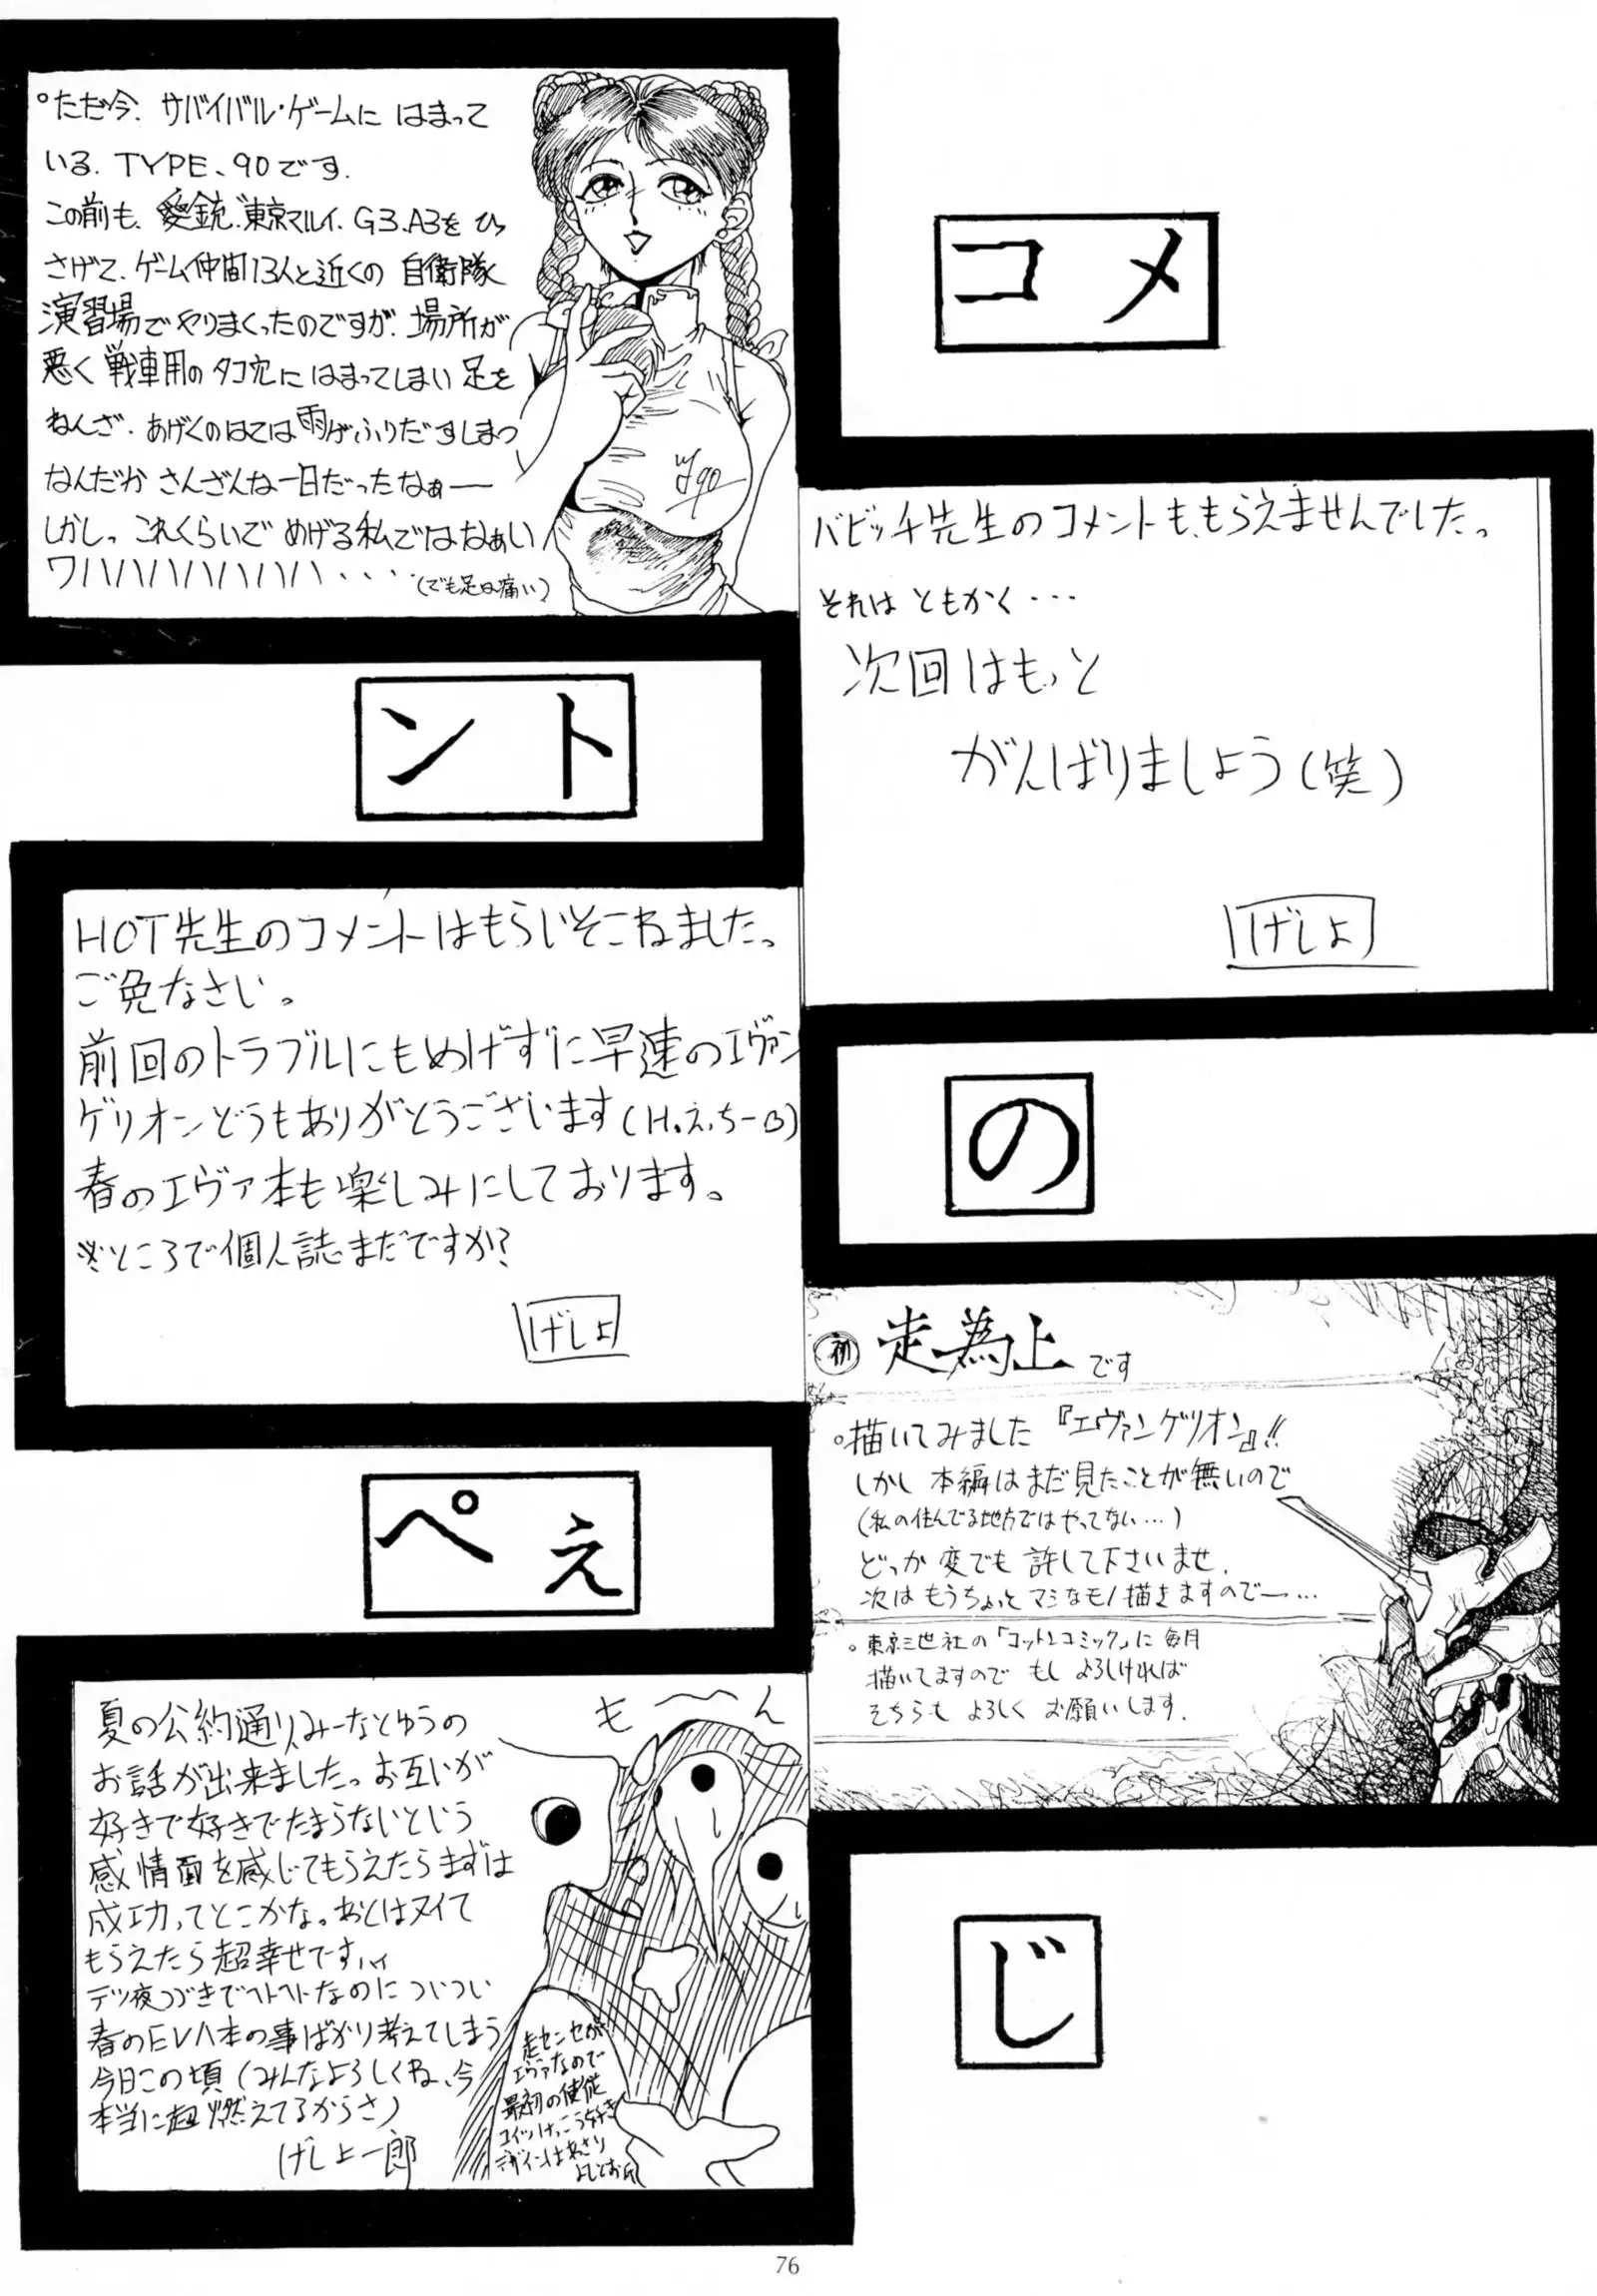 コメ
ント
の
ぺぇ
じ
°ただ今、サバイバル・ゲームに はまって
いる、TYPE、90です.
この前も、愛銃、東京マルイ、G3.A3を ひっ
さげて、ゲーム仲間13人と近くの 自衛隊
演習場でやりまくったのですが、場所が
悪く 戦車用のタコ穴に はまってしまい 足を
ねんざ、あげくのはては雨がふりだすしまつ
なんだか さんざんな一日だったなぁー
しかし、これくらいで めげる私ではなぁい
ワハハハハハハハハ・・・・(でも足は痛い)
y90
バビッチ先生のコメントももらえませんでした。
それは ともかく・・・
次回はもっと
がんばりましょう(笑)
げしょ
HOT先生のコメントはもらいそこねました。
ご免なさい。
前回のトラブルにもめげずに早速のエヴァン
ゲリオンどうもありがとうございます(H.え.ちーB)
春のエヴァ本も楽しみにしております。
※ところで個人誌まだですか?
げしょ
初 走為上 です
°描いてみました『エヴァンゲリオン』!!
しかし 本編はまだ見たことが無いので
(私の住んでる地方ではやってない…)
どっか 変でも 許して下さいませ.
次は もうちょっと マシなモノ描きますのでー…
°東京三世社の「コットンコミック」に 毎月
描いてますので もし よろしければ
そちらも よろしく お願いします.
夏の公約通りみーなとゆうの
お話が出来ました。お互いが
好きで好きでたまらないという
感情面を感じてもらえたらまずは
成功ってとこかな。あとはヌイて
もらえたら超幸せですハイ
テツ夜つづきでヘトヘトなのについつい
春のEVA本の事ばかり考えてしまう
今日この頃(みんなよろしくね、今
本当に超燃えてるからさ)
げしょ一郎
も〜ん
走センセが
エヴァなので
最初の使徒
コイツけっこう好き
デザインはあさり
よしとお氏
76